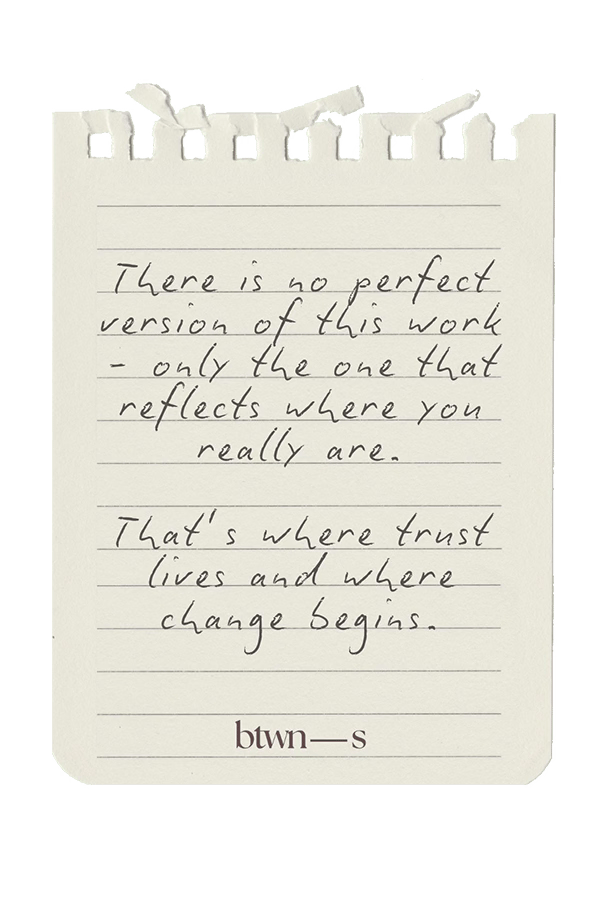 There is no perfect
version of this work
- only the one that
reflects where you
really are.
That's where trust
lives and where
change begins.
btwn—s